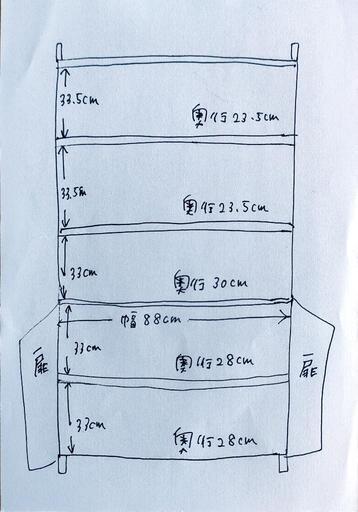 33.5cm
奥行23.5cm
33.5m
奥行23.5cm
33cm
奥行30cm
幅88cm
扉
33cm
奥行28cm
扉
33cm
奥行28cm